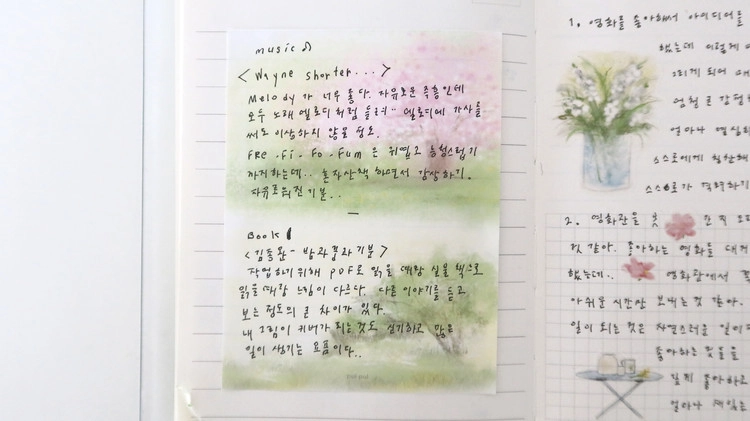 music ♫
< Wayne shorter... >
Melody가 너무 좋다. 자유로운 즉흥인데
모두 노래 멜로디처럼 들려.. 멜로디에 가사를
써도 이상하지 않을 정도.
FRe - Fi - Fo - Fum 은 위엄있고
까지하는데.. 혼자 산책하면서 감상하기.
자유로워진 기분..
Book
< 김종완 - 밤과 꿈과 기분 >
작업하기 위해 PDF로 읽을 때랑 실물 책으로
읽을때랑 느낌이 다르다. 다른 이야기를 듣고
보는 정도의 큰 차이가 있다.
내 그림이 커버가 되는것도 신기하고 많은
일이 생기는 요즘이다..
1. 영화를 좋아해서 아이디어를
했는데 이렇게
그리게 되어
엄청 큰
얼마나 열심히
스스로에게 칭찬해
스스로가
2. 영화관을 간직
것 같아. 좋아하는 영화를
했는데.. 영화관에서
아쉬운 시간만 보내는 것 같아.
일이 되는 것은 자연스러운 일이
좋아하는 것들을
깊게 좋아하고
얼마나